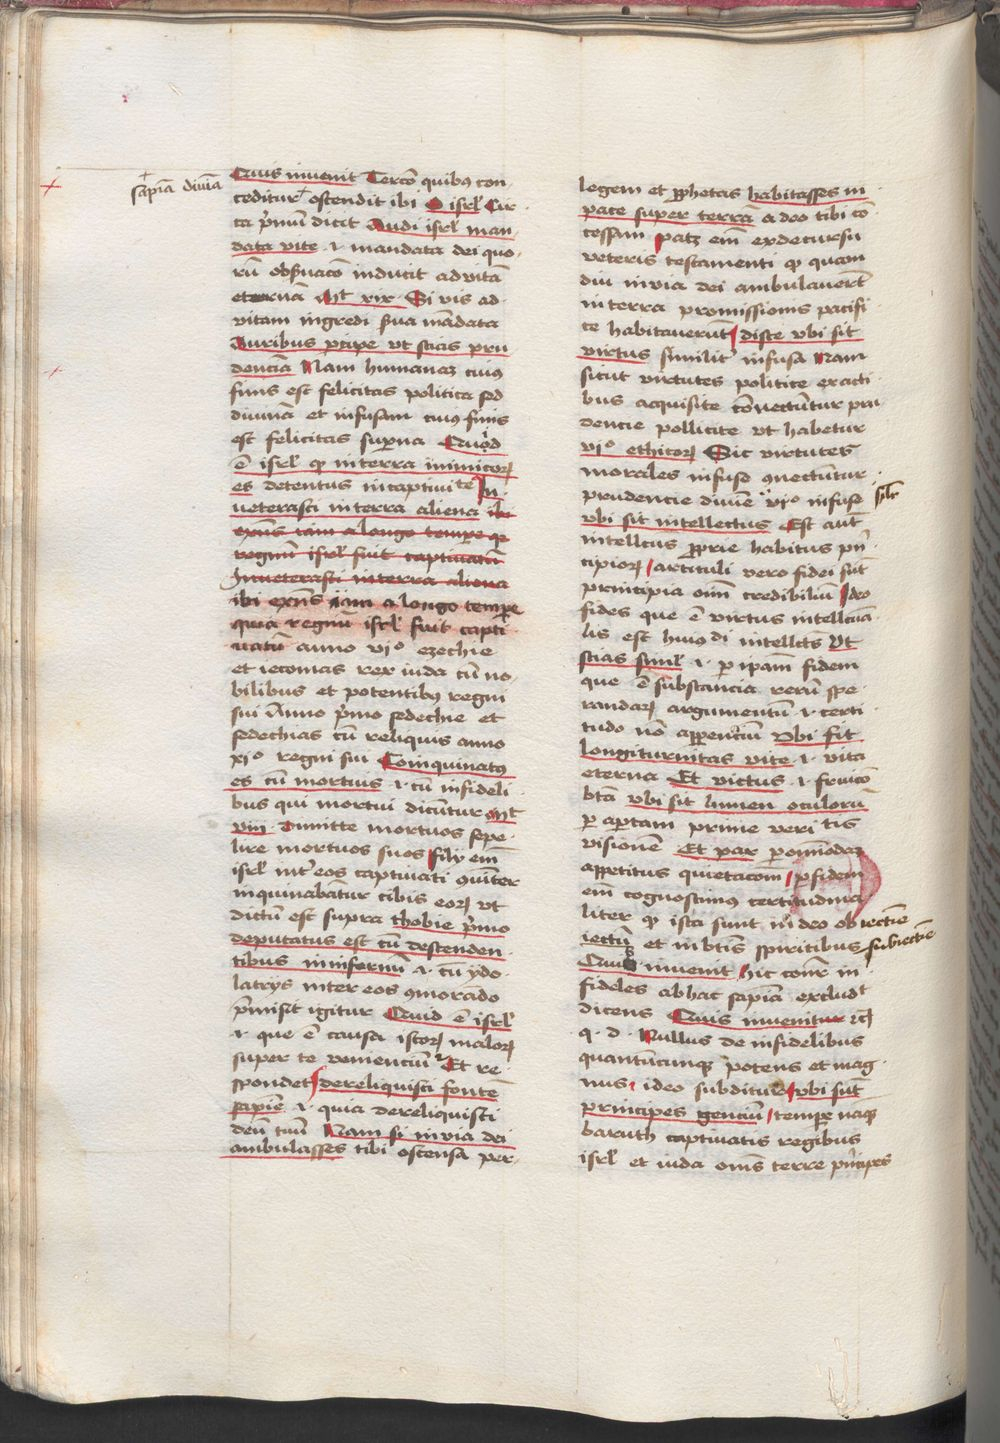 sapiā diuiā
Quis inuenit Tercō quibus con
ceditur ostendit ibi O isrl Cir
ca p̄mū dicit Audi isrl man
data vite .i. mandata dei quo
rū obs̄uacō inducit ad vitā
eternā Mt xix Si vis ad
vitam ingredi s̄ua mādata
Auribus p̄cipe vt scias pru
denciā Nam humanaꝫ cuius
finis est felicitas politica sed
diuinā et infusam cuius finis
est felicitas sup̄na Quid
ē isrl qꝫ in terra inimicoꝝ
es detentus in captiuitate In
ueterasti in terra aliena ibi
exn̄s iam a longo tempe qꝫ
regnū isrl fuit captiuatū
Inueterasti in terra aliena
ibi exn̄s iam a longo tempe
quia regnū isrl fuit capti
uatū anno vi° ezechie
et ieconias rex iuda cū no
bilibus et potentibus regni
sui Anno p̄mo sedechie et
sedechias cū reliquis anno
xi° regni sui Coinquinatus
es cū mortuis .i. cū infideli
bus qui mortui dicūtur Mt
viii Dimitte mortuos sepe
lire mortuos suos filii em̄
isrl int̄ eos captiuati ꝯuiter
inquinabātur cibis eoꝝ vt
dictū est supra thobie p̄mo
deputatus est cū descenden
tibus in infernū .i. cū ydo
latrys inter eos ꝯmorādo
p̄misit igitur Quid ē isrl
.i. que ē causa istoꝝ maloꝝ
super te veniencium Et re
spondet dereliquisti fontē
sapiē .i. quia dereliquisti
deū tuū Nam si in via dei
ambulasses tibi ostensa per
legem et ꝓphetas habitasses in
pace super terrā a deo tibi cō
cessam patꝫ em̄ ex decursu
veteris testamenti qꝫ quam
diu in via dei ambulauerūt
in terra promissionis pacifi
ce habitauerūt disce vbi sit
virtus similit̄ infusa Nam
sicut virtutes politice exacti
bus acquisite cōnectūtur pru
dencie pollitice vt habetur
vi° ethicoꝝ Sic virtutes
morales infuse ꝯnectūtur
prudencie diuīe vi° infuse
vbi sit intellectus Est aut̄
intellcus ꝓprie habitus prī
cipioꝝ articuli vero fidei sūt
principia om̄ credibiliū Ideo
fides que ē virtus intellcua
lis est huiusdi intellcūs Vt
scias simul .i. per ipam fidem
que ē substancia rerū spe
randaꝝ argumentū .i. certi
tudo nō apparenciū vbi sit
longiturnitas vite .i. vita
eterna Et victus .i. fruicō
btā vbi sit lumen oculorū
per aptam prime veritis
visionē Et pax per omīodaꝫ
appetitus quietacōm per fidem
em̄ cognoscimus certitudina
liter qꝫ ista sunt in deo obiectiue
iectiū et in btīs spiritibus subiectiue
Quis inuenit hic cōn̄r in
fideles ab hac sapiā excludt̄
dicens Quis inuenitur
q. d. Nullus de infidelibus
quantūcunqꝫ potens et mag
nus ideo subditur vbi sūt
principes genciū tempe naqꝫ
baruth captiuatis regibus
isrl et iuda om̄s terre prīcipes